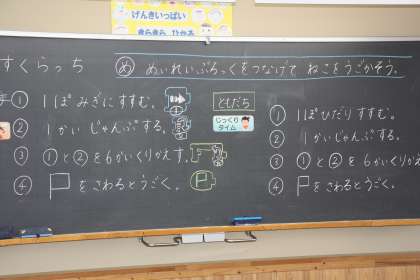 げんきいっぱい
きらきら ひかる
すくらっち
め めいれいぶろっくをつなげて ねこをうごかそう。
① 1ぽ みぎにすすむ。
② 1かい じゃんぷする。
③ ①と②を6かいくりかえす。
④ をさわるとうごく。
ともだち
じっくり
タイム
① 1ぽ ひだりすすむ。
② 1かい じゃんぷする。
③ ①と②を6かいくりかえ
④ をさわるとうごく。